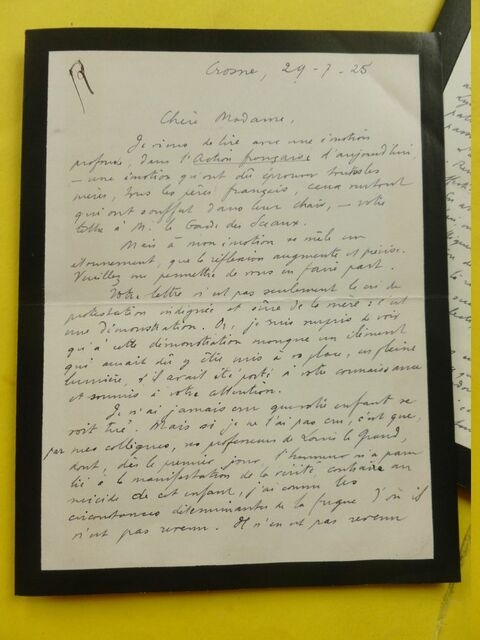 Crosne, 29-7-25
Chère Madame,
Je viens de lire avec une émotion
profonde, dans l'Action française d'aujourd'hui,
– une émotion qu'ont dû éprouver toutes les
mères, tous les pères français, ceux surtout
qui ont souffert dans leur chair, – votre
lettre à M. le Garde des Sceaux.
Mais à mon émotion se mêle un
étonnement, que la réflexion augmente et précise.
Veuillez me permettre de vous en faire part.
Votre lettre n'est pas seulement le cri de
protestation indignée et sûre de la mère : c'est
une démonstration. Or, je suis surpris de voir
qu'à cette démonstration manque un élément
qui aurait dû y être mis à sa place, en pleine
lumière, s'il avait été porté à votre connaissance
et soumis à votre attention.
Je n'ai jamais cru que votre enfant se
soit tué. Mais si je ne l'ai pas cru, c'est que,
par mes collègues, ses professeurs de Louis le Grand,
dont, dès le premier jour, l'honneur m'a paru
lié à la manifestation de la vérité contraire au
suicide de cet enfant, j'ai connu les
circonstances déterminantes de la fugue d'où il
n'est pas revenu. Il n'en est pas revenu